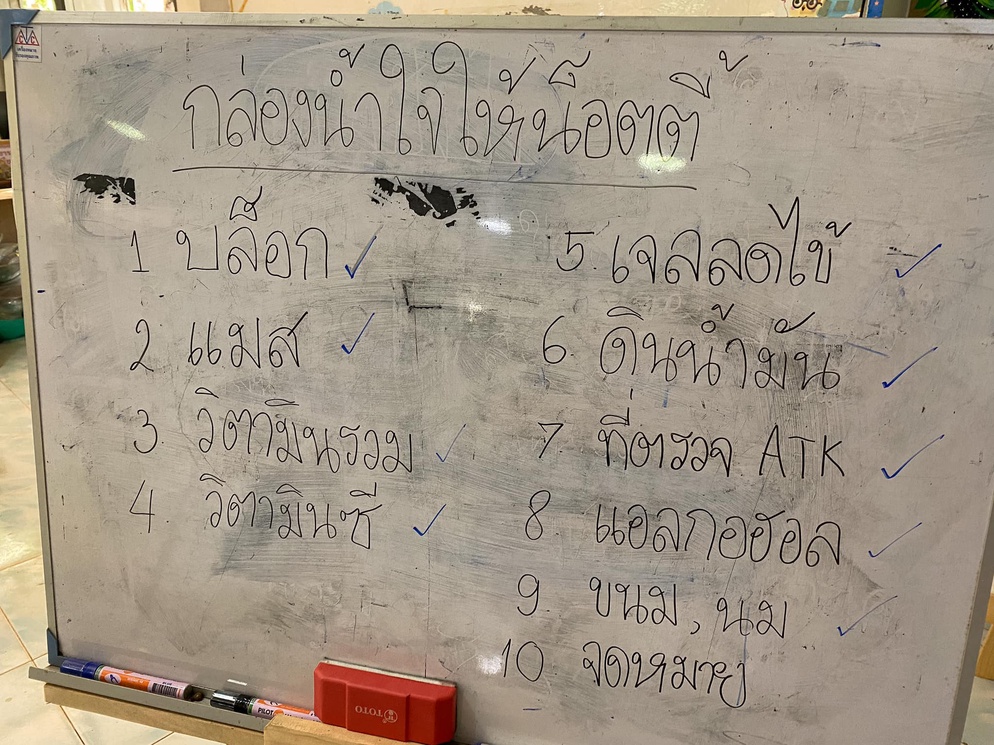 กล่องน้ำใจให้น็อตตี้
1 บล็อก ✓
2 แมส ✓
3. วิตามินรวม ✓
4. วิตามินซี ✓
5. เจลลดไข้ ✓
6. ดินน้ำมัน ✓
7. ที่ตรวจ ATK ✓
8. แอลกอฮอล ✓
9. ขนม, นม ✓
10 จดหมาย
TOTO
PILOT